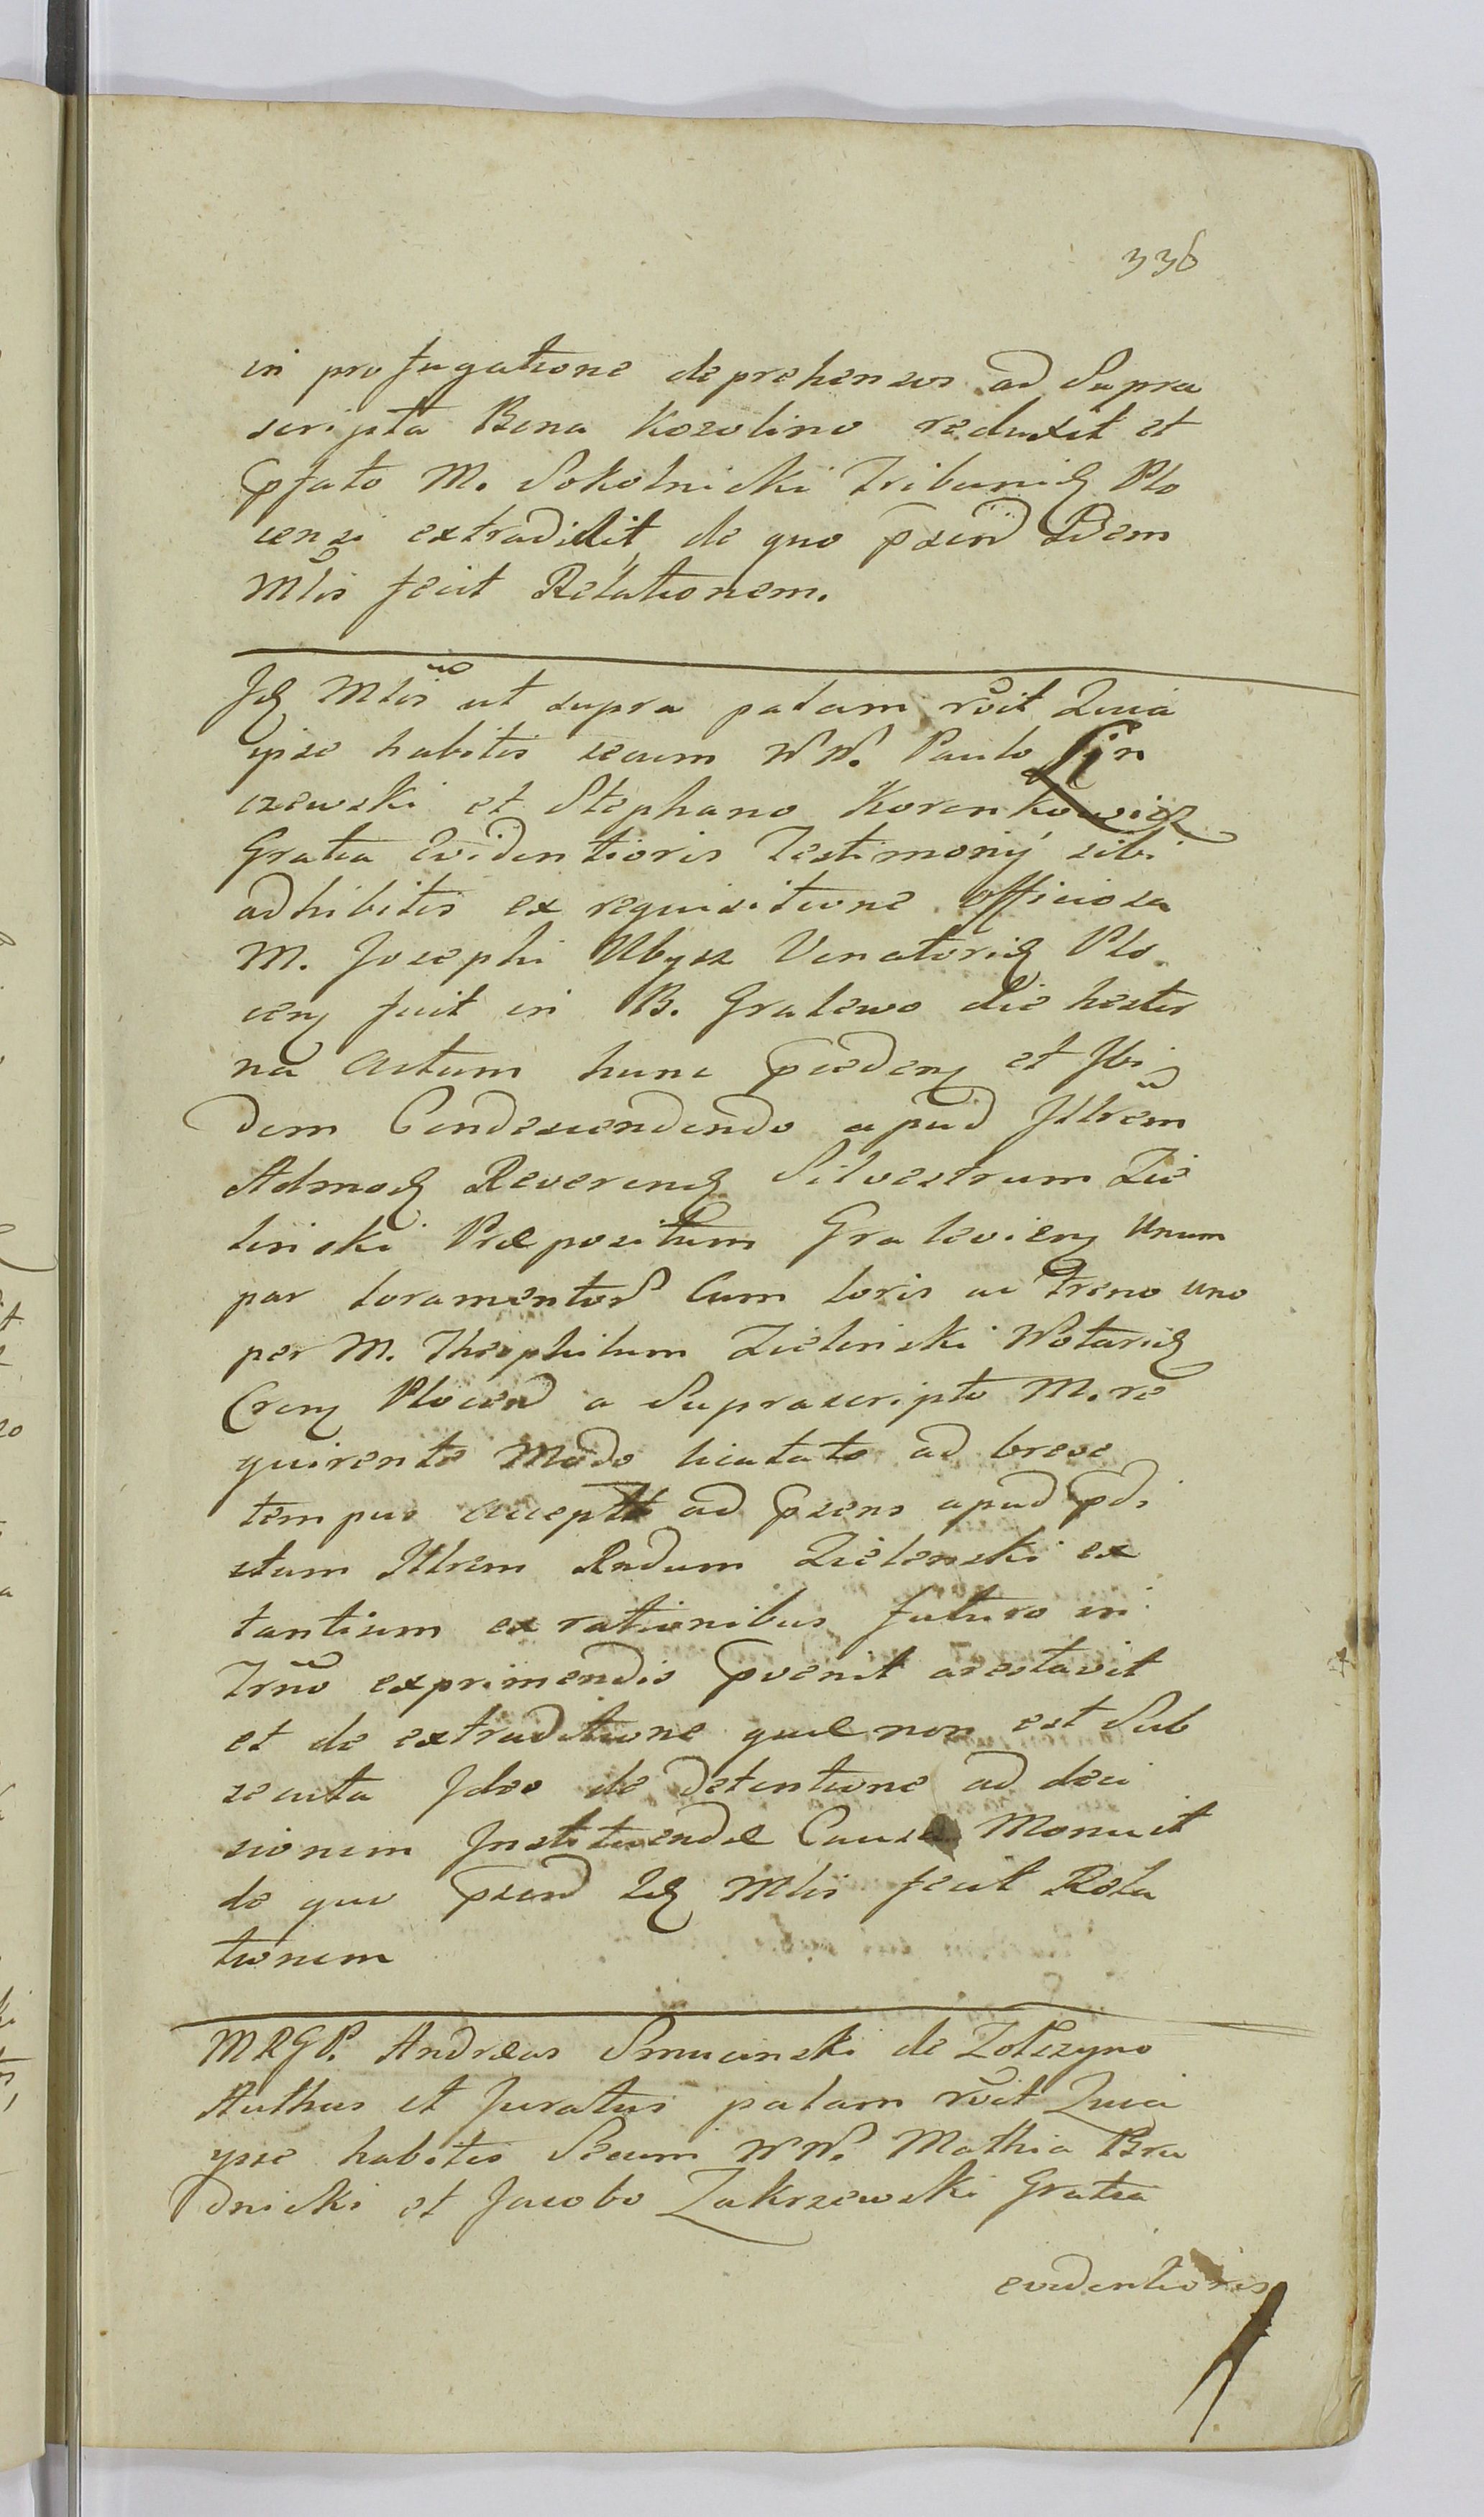 336
in profugatione deprehensus ad Supra
scripta Bona Kozolino reduxit et
pfato M. Sokolnicki Tribunid Plo
censi extradidit, de quo psend Idem
Mlis fecit Relationem.
Jd Mlis ut supra palam rcit Quia
ipse habitis secum NN. Paulo
czewski et Stephano Korenkowicz
Gratia Evidentioris Testimonÿ sibi
adhibitis ex requisitione officiosa
M. Josephi Ubysz Venatorid Plo
cen fuit in B. Gralewo die hester
na Actum hunc pceden et Ibi
dem Condescendendo apud Jllrem
Admod Reverend Silvestrum Zie
linski Præpositum Gralevien Unum
par loramentor Cum loris ac Freno uno
per M. Theophilum Zielinski Notarid
Cren Plocen a Suprascripto M. re
quirente Modo licitato ad breve
tempus accept ad psens apud pdi
ctum Jllrem Rndum Zielenski ex
tantium ex rationibus futuro in
Trno exprimendis pvenit arestavit
et de extraditione quæ non est Sub
secuta Ideo de detentione ad deci
sionem Instituendæ Causæ Monuit
de quo psend Id Mlis fecit Rela
tionem
MRGP. Andreas Smucinski de Zolezyno
Authus et Juratus palam rcit Quia
ipse habitis Secum NN. Mathia Bru
dnicki et Jacobo Zakrzewski Gratia
evidentioris